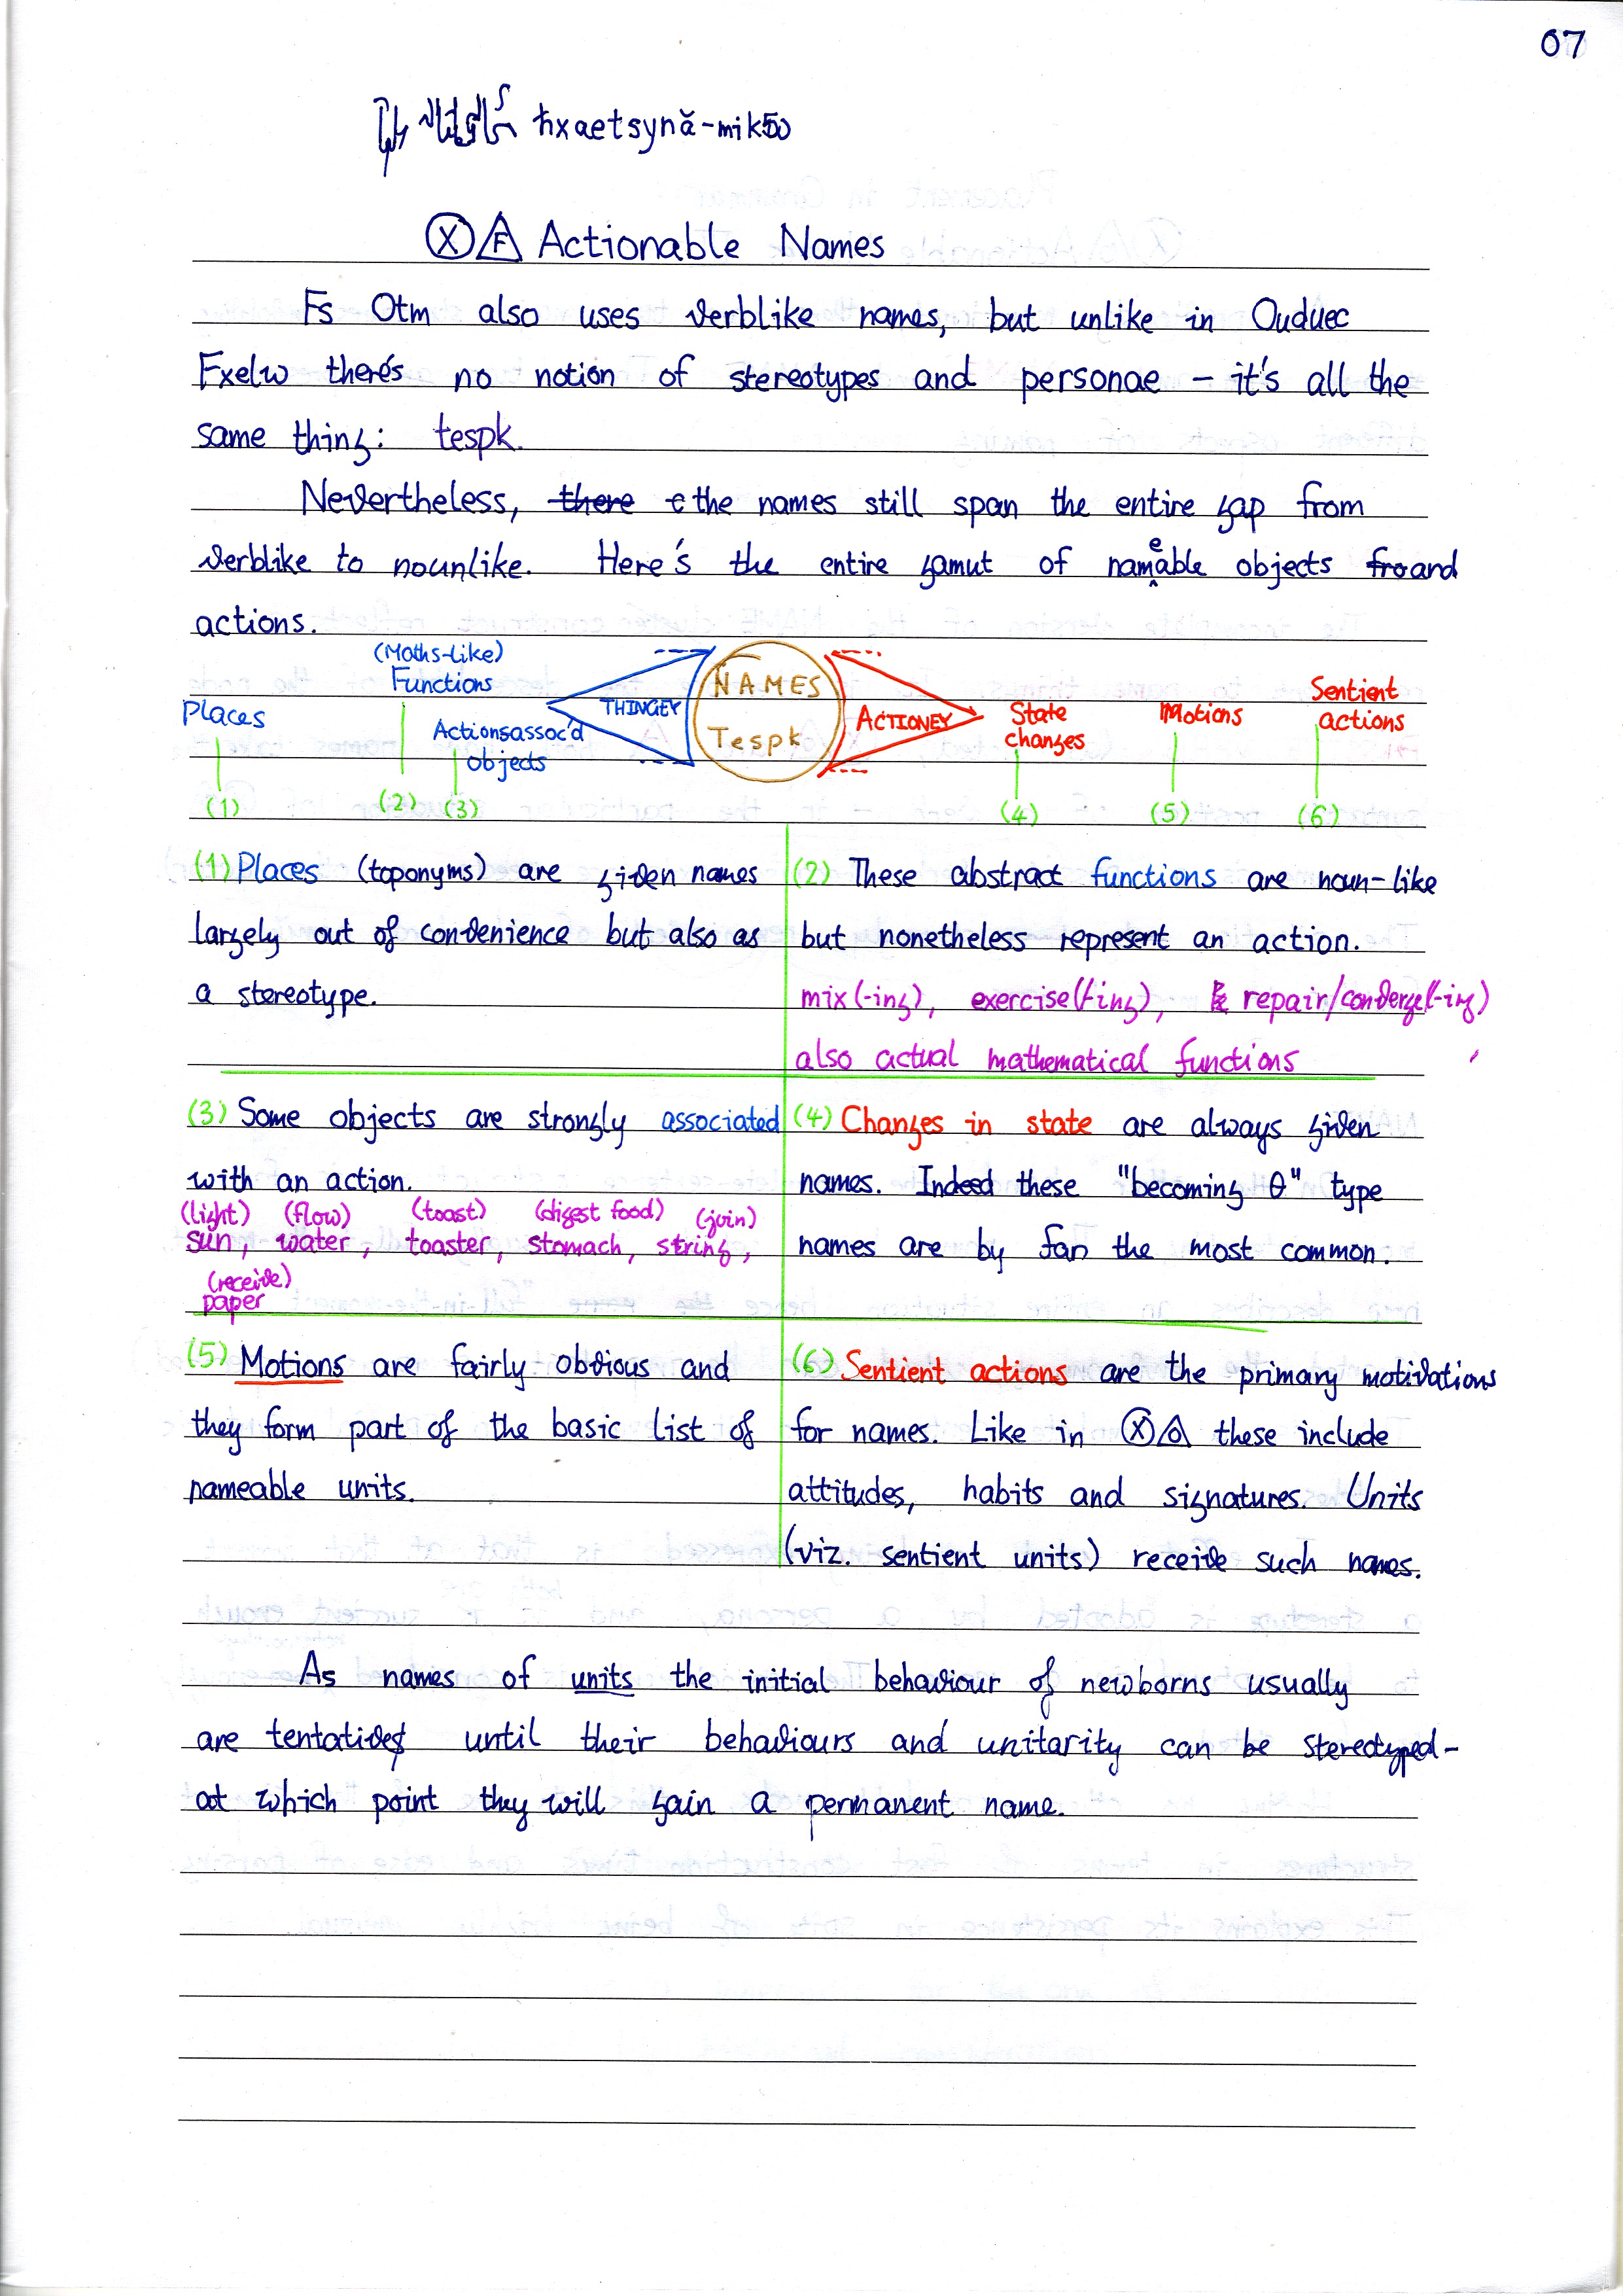 07
ħxaetsynă-mik
Ⓧ Actionable Names
Fs Otm also uses verblike names, but unlike in Ouduec
Fxelw there's no notion of stereotypes and personae – it's all the
same thing: tespk.
Nevertheless, there the names still span the entire gap from
verblike to nounlike. Here's the entire gamut of nameable objects fro and
actions.
(Maths-like)
Functions
Places
Actions assoc'd
objects
THINGEY
NAMES
Tespk
ACTIONEY
State
changes
Motions
Sentient
actions
(1) (2) (3) (4) (5) (6)
(1) Places (toponyms) are given names
largely out of convenience but also as
a stereotype.
(2) These abstract functions are noun-like
but nonetheless represent an action.
mix(-ing), exercise(-ing), repair/converge(-ing)
also actual mathematical functions
(3) Some objects are strongly associated
with an action.
(light) (flow) (toast) (digest food) (join)
sun, water, toaster, stomach, string,
(receive)
paper
(4) Changes in state are always given
names. Indeed these "becoming θ" type
names are by far the most common.
(5) Motions are fairly obvious and
they form part of the basic list of
nameable units.
(6) Sentient actions are the primary motivations
for names. Like in Ⓧ these include
attitudes, habits and signatures. Units
(viz. sentient units) receive such names.
As names of units the initial behaviour of newborns usually
are tentative until their behaviours and unitarity can be stereotyped–
at which point they will gain a permanent name.